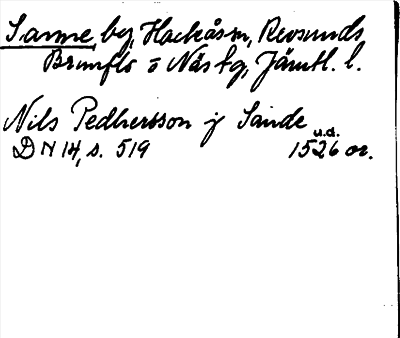 Sanne by, Hackås sn, Revsunds,
Brunflo o Näs tg, Jämtl. l.
Nils Pedhersson j Sande
u.d.
DN 14, s. 519 1526 or.